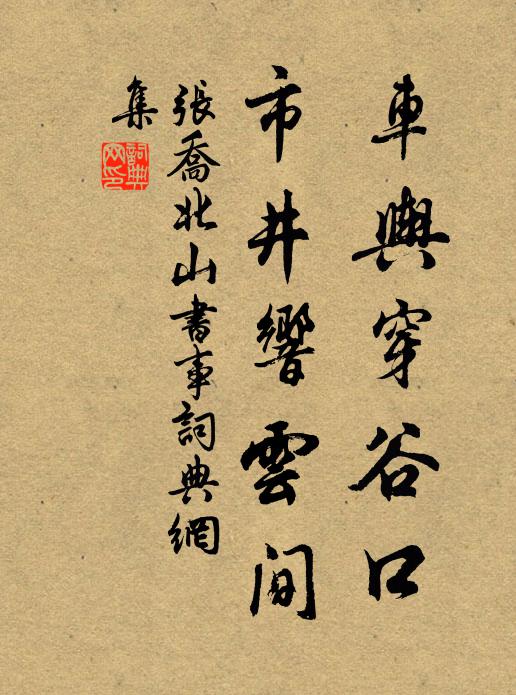 車輿穿谷口
市井響雲間
張喬北山書事詞典網
集
詞典
网印